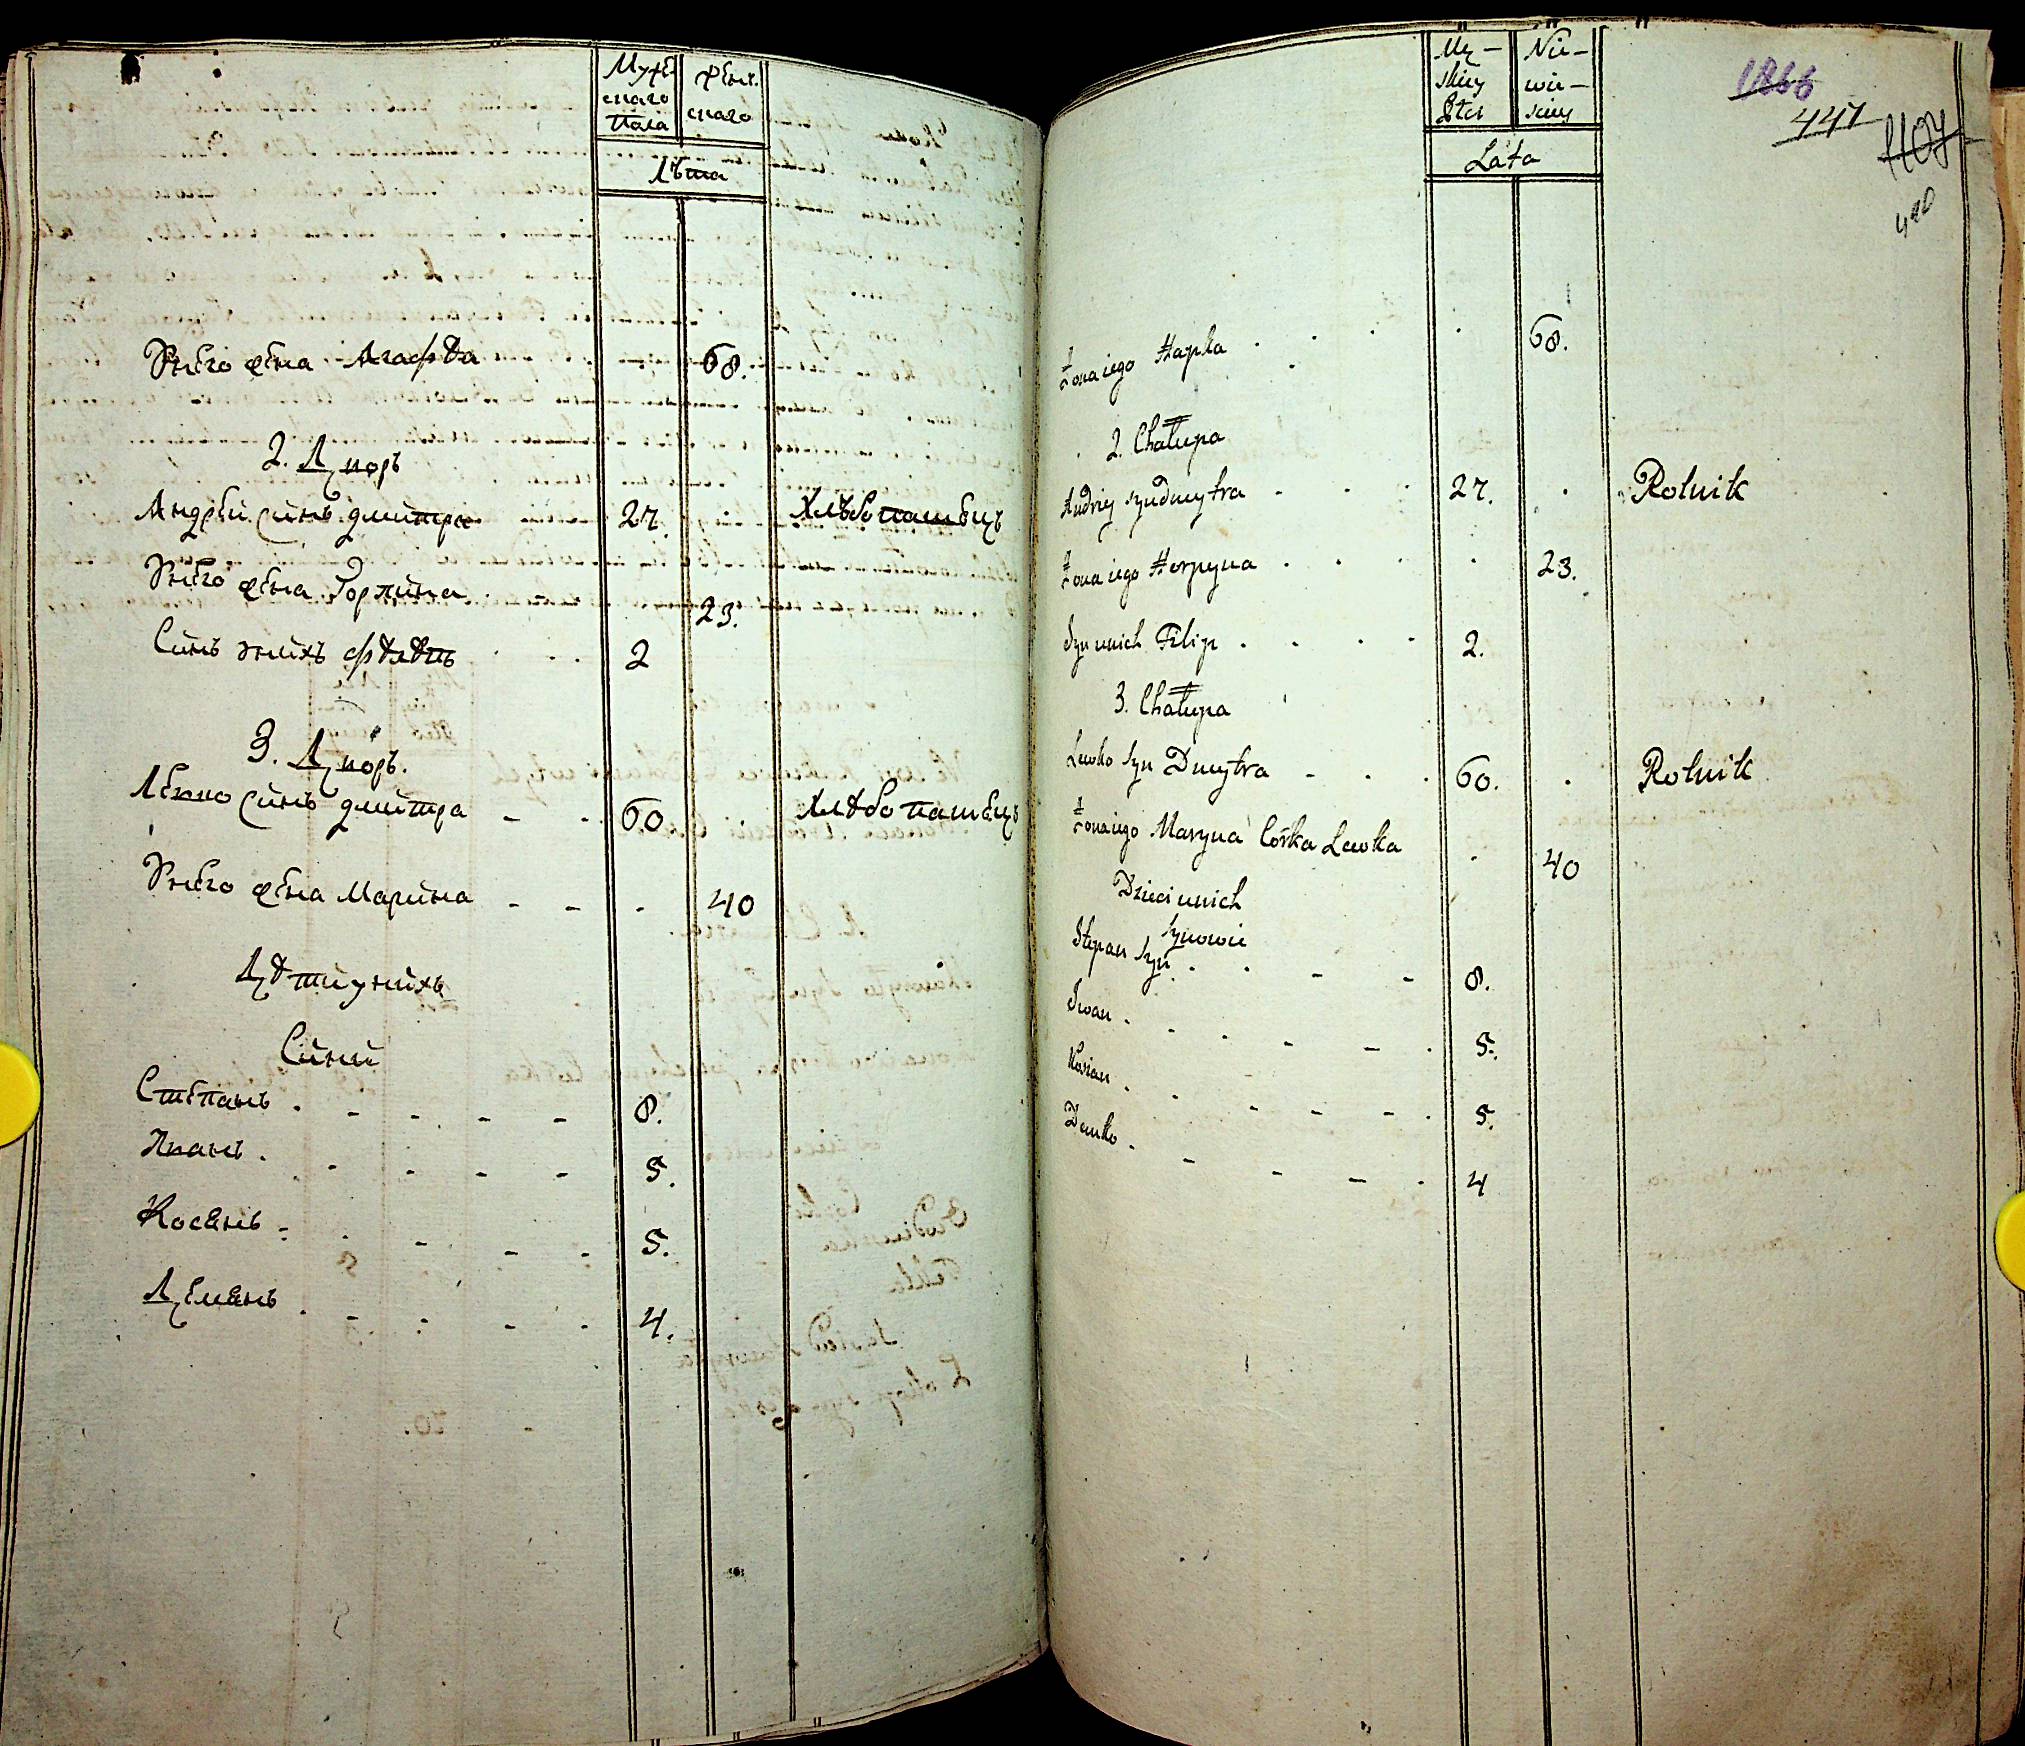 Мужескаго Пола
Женскаго
Лѣта
Унего жена Агафѣа 68.
2. Дворъ
Андрей синъ дмитра 27. Хлѣбопашецъ
Унего жена Горпина 23.
Синъ унихъ фѣлѣпъ 2
3. Дворъ.
Левко синъ дмитра 60 Хлѣбопашецъ
Унего жена Марина 40
Дѣти унихъ
Сини
Степанъ 8.
Иванъ 5.
Касѣянъ 5.
Демянъ 4.
Męskiey Płci
Niewieściey
Lata
1866
447
1107
440
Żona iego Hapka 68.
2. Chałupa
Andriy syn Dmytra 27. Rolnik
Żona iego Horpyna 23.
Syn unich Filip 2.
3. Chałupa
Lewko syn Dmytra 60. Rolnik
Żona iego Maryna Córka Lewka 40
Dzieci unich
Synowie
Stepan Syn 8.
Iwan 5.
Kosian 5.
Demko 4